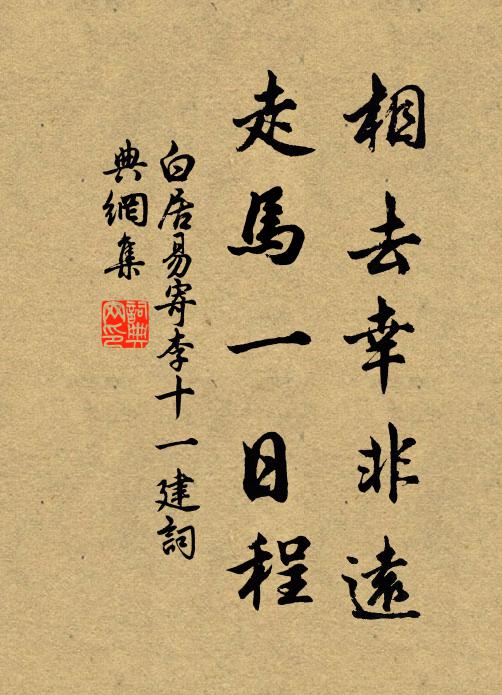 相去幸非遠
走馬一日程
白居易寄李十一建詞
典網集
詞典
网印